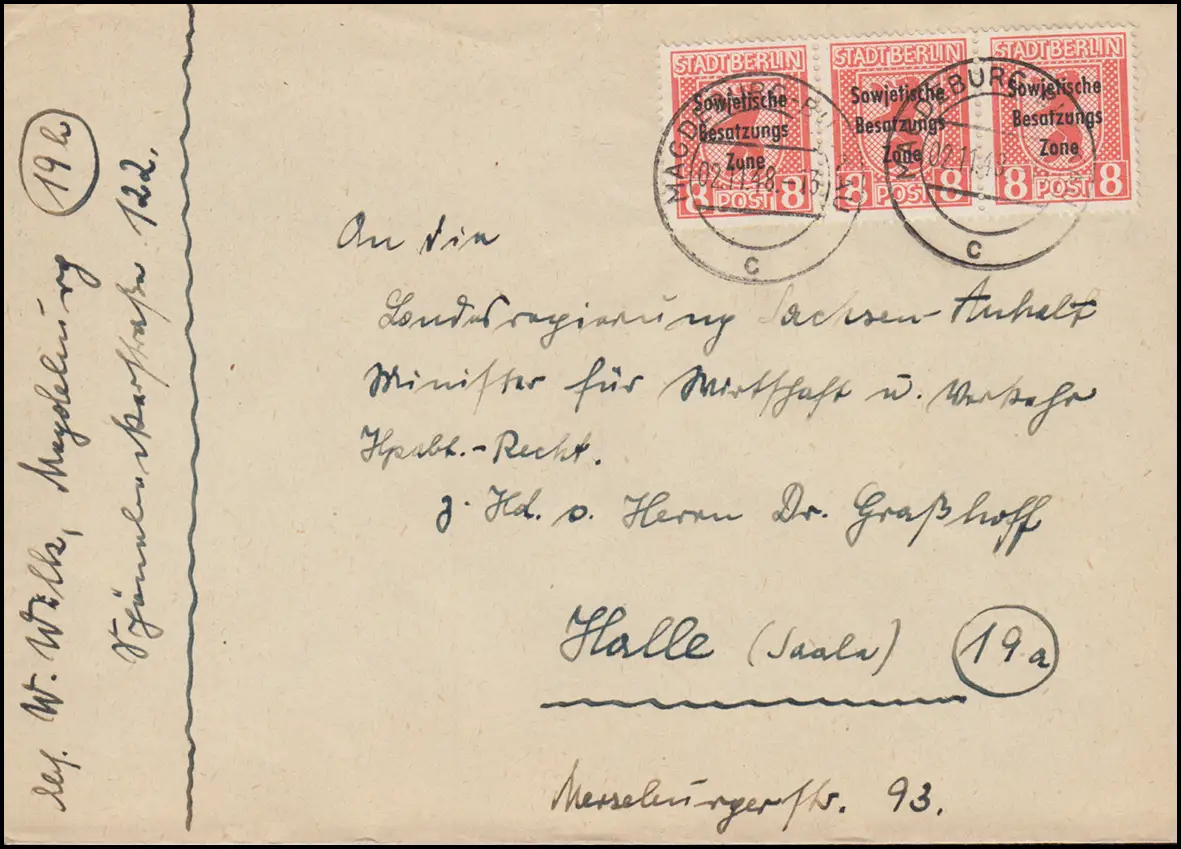 STADT BERLIN STADT BERLIN STADT BERLIN
Sowjetische Sowjetische Sowjetische
Besatzungs Besatzungs Besatzungs
Zone Zone Zone
8 POST 8 8 POST 8 8 POST 8
MAGDEBURG-BU
02.11.48
c
MAGDEBURG
02.11.48
c
An die
Landesregierung Sachsen-Anhalt
Minister für Wirtschaft u. Verkehr
Hpabt.-Recht.
z. Hd. v. Herrn Dr. Graßhoff
Halle (Saale) 19a
Merseburgerstr. 93.
W. Wilk, Magdeburg 19b
122.